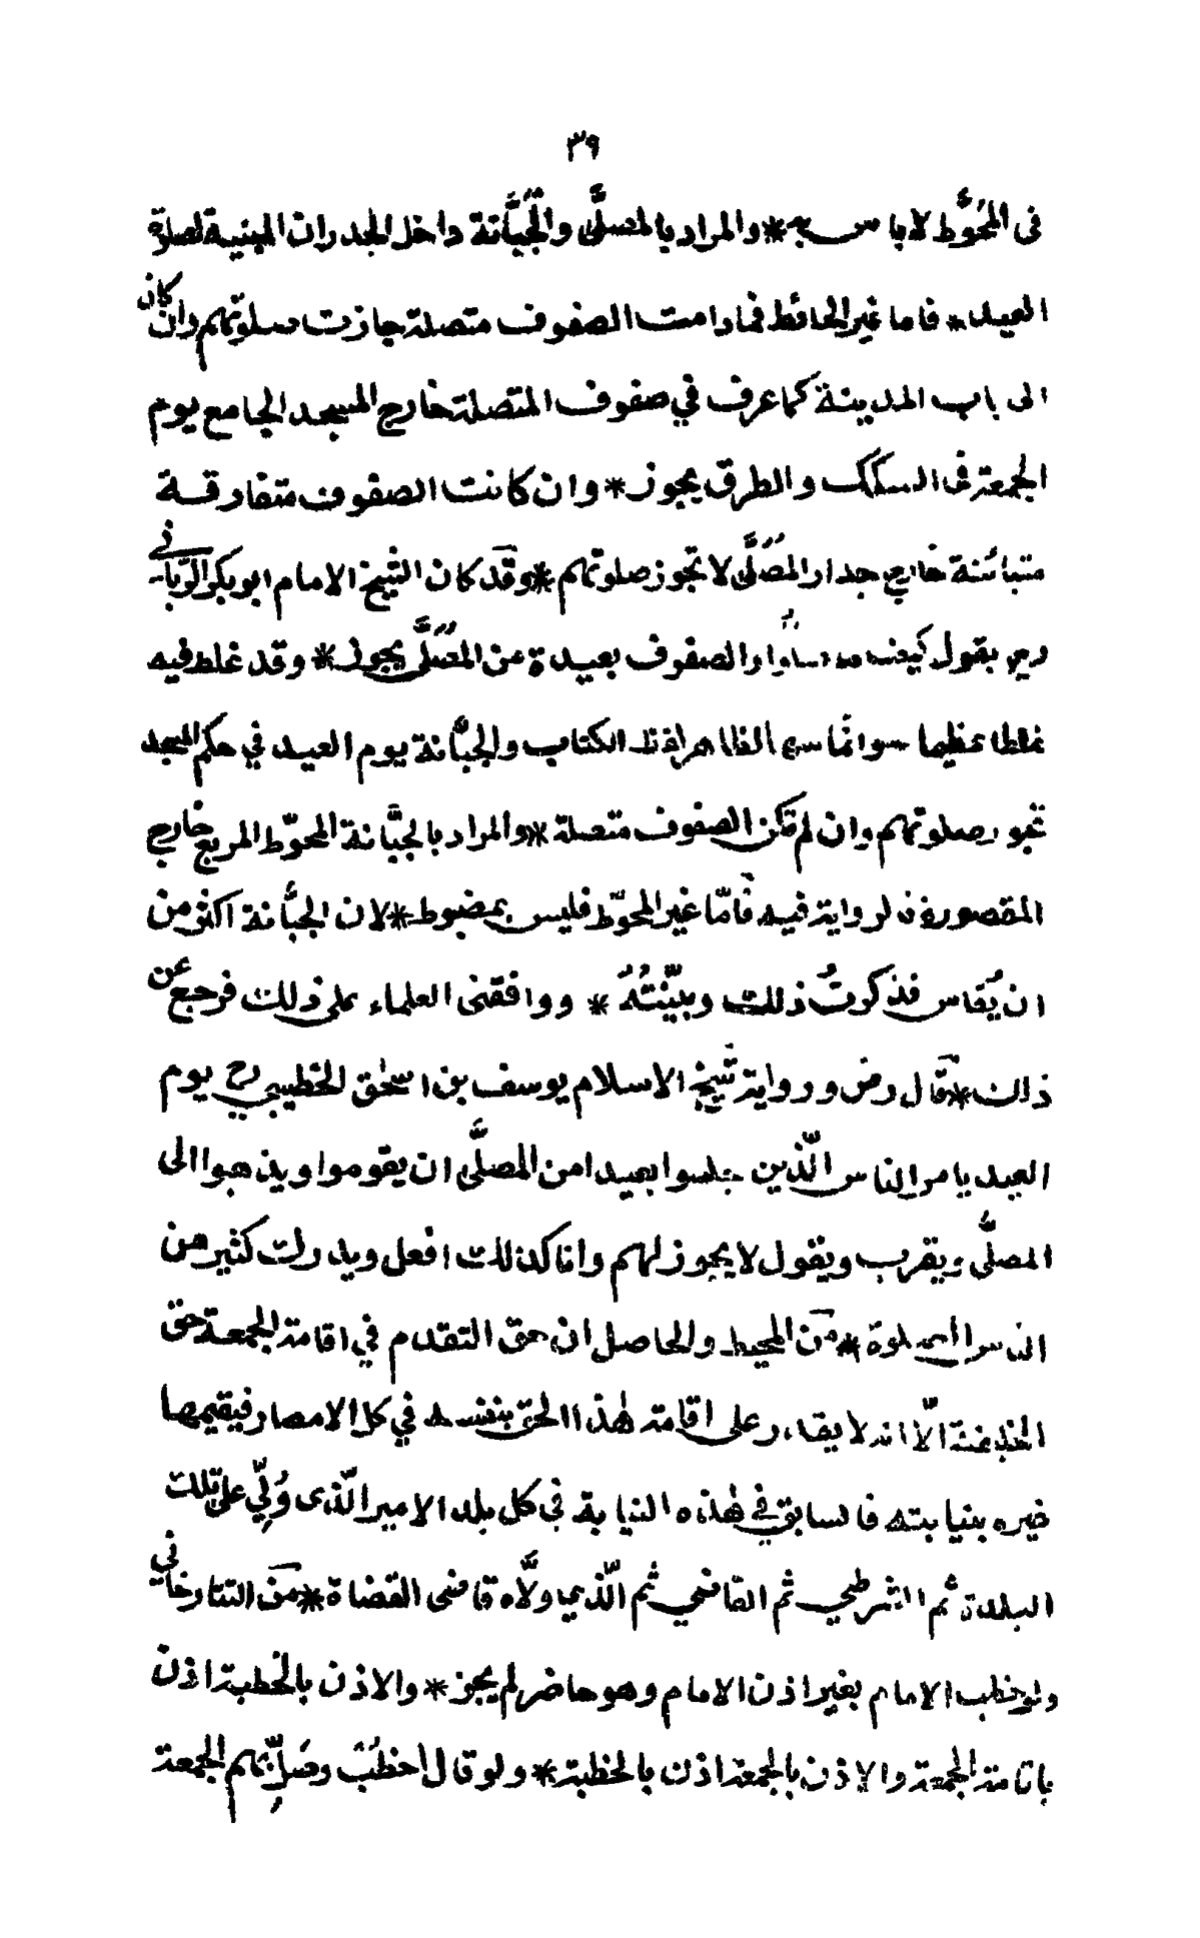 ٣٩
فى المُحَوَّط لا باس به * والمراد بالمصلَّى والجُبَّانة داخل الجدران المبنية لصلوة
العيد * فاما غير الحائط فما دامت الصفوف متصلة جازت صلوتهم وان كان
الى باب المدينة كما عرف في صفوف المتصلة خارج المسجد الجامع يوم
الجمعة فى السكك والطرق يجوز * وان كانت الصفوف متفارقة
متبائنة خارج جدار المُصَلَّى لا تجوز صلوتهم * وقد كان الشيخ الامام ابو بكر
رح يقول كيف والصفوف بعيدة من المُصَلَّى يجوز * وقد غلط فيه
غلطا عظيما الظاهر لفظ الكتاب والجبَّانة يوم العيد في حكم المسجد
تجوز صلوتهم وان لم تكن الصفوف متصلة * والمراد بالجبَّانة المحوّط المربع خارج
المقصورة فيه فامّا غير المحوّط فليس بمضبوط * لان الجبَّانة اكثر من
ان يُقاس فذكرتُ ذلك وبيّنتُهُ * ووافقنى العلماء على ذلك فرجع عن
ذلك * قال رض ورواية شيخ الاسلام يوسف بن اسحٰق الخطيبي رح يوم
العيد يامر الناس الّذين جلسوا بعيدا من المصلَّى ان يقوموا ويذهبوا الى
المصلَّى ويقرب ويقول لا يجوز لهم وانا كذلك افعل ويدرك كثير من
الناس الصلوة * من المحيط والحاصل ان حق التقدم في اقامة الجمعة حق
الخليفة الّا انه لا يقدر على اقامة هٰذا الحق بنفسه في كل الامصار فيقيمها
غيره بنيابته فالسابق في هٰذه النيابة في كل بلد الامير الّذى وُلِّي على تلك
البلدة ثم الشرطي ثم القاضي ثم الّذي ولَّاه قاضى القضاة * من التتارخاني
ولو خطب الامام بغير اذن الامام وهو حاضر لم يجز * والاذن بالخطبة اذن
باقامة الجمعة والاذن بالجمعة اذن بالخطبة * ولو قال اخطُبْ وصَلِّ بهم الجمعة